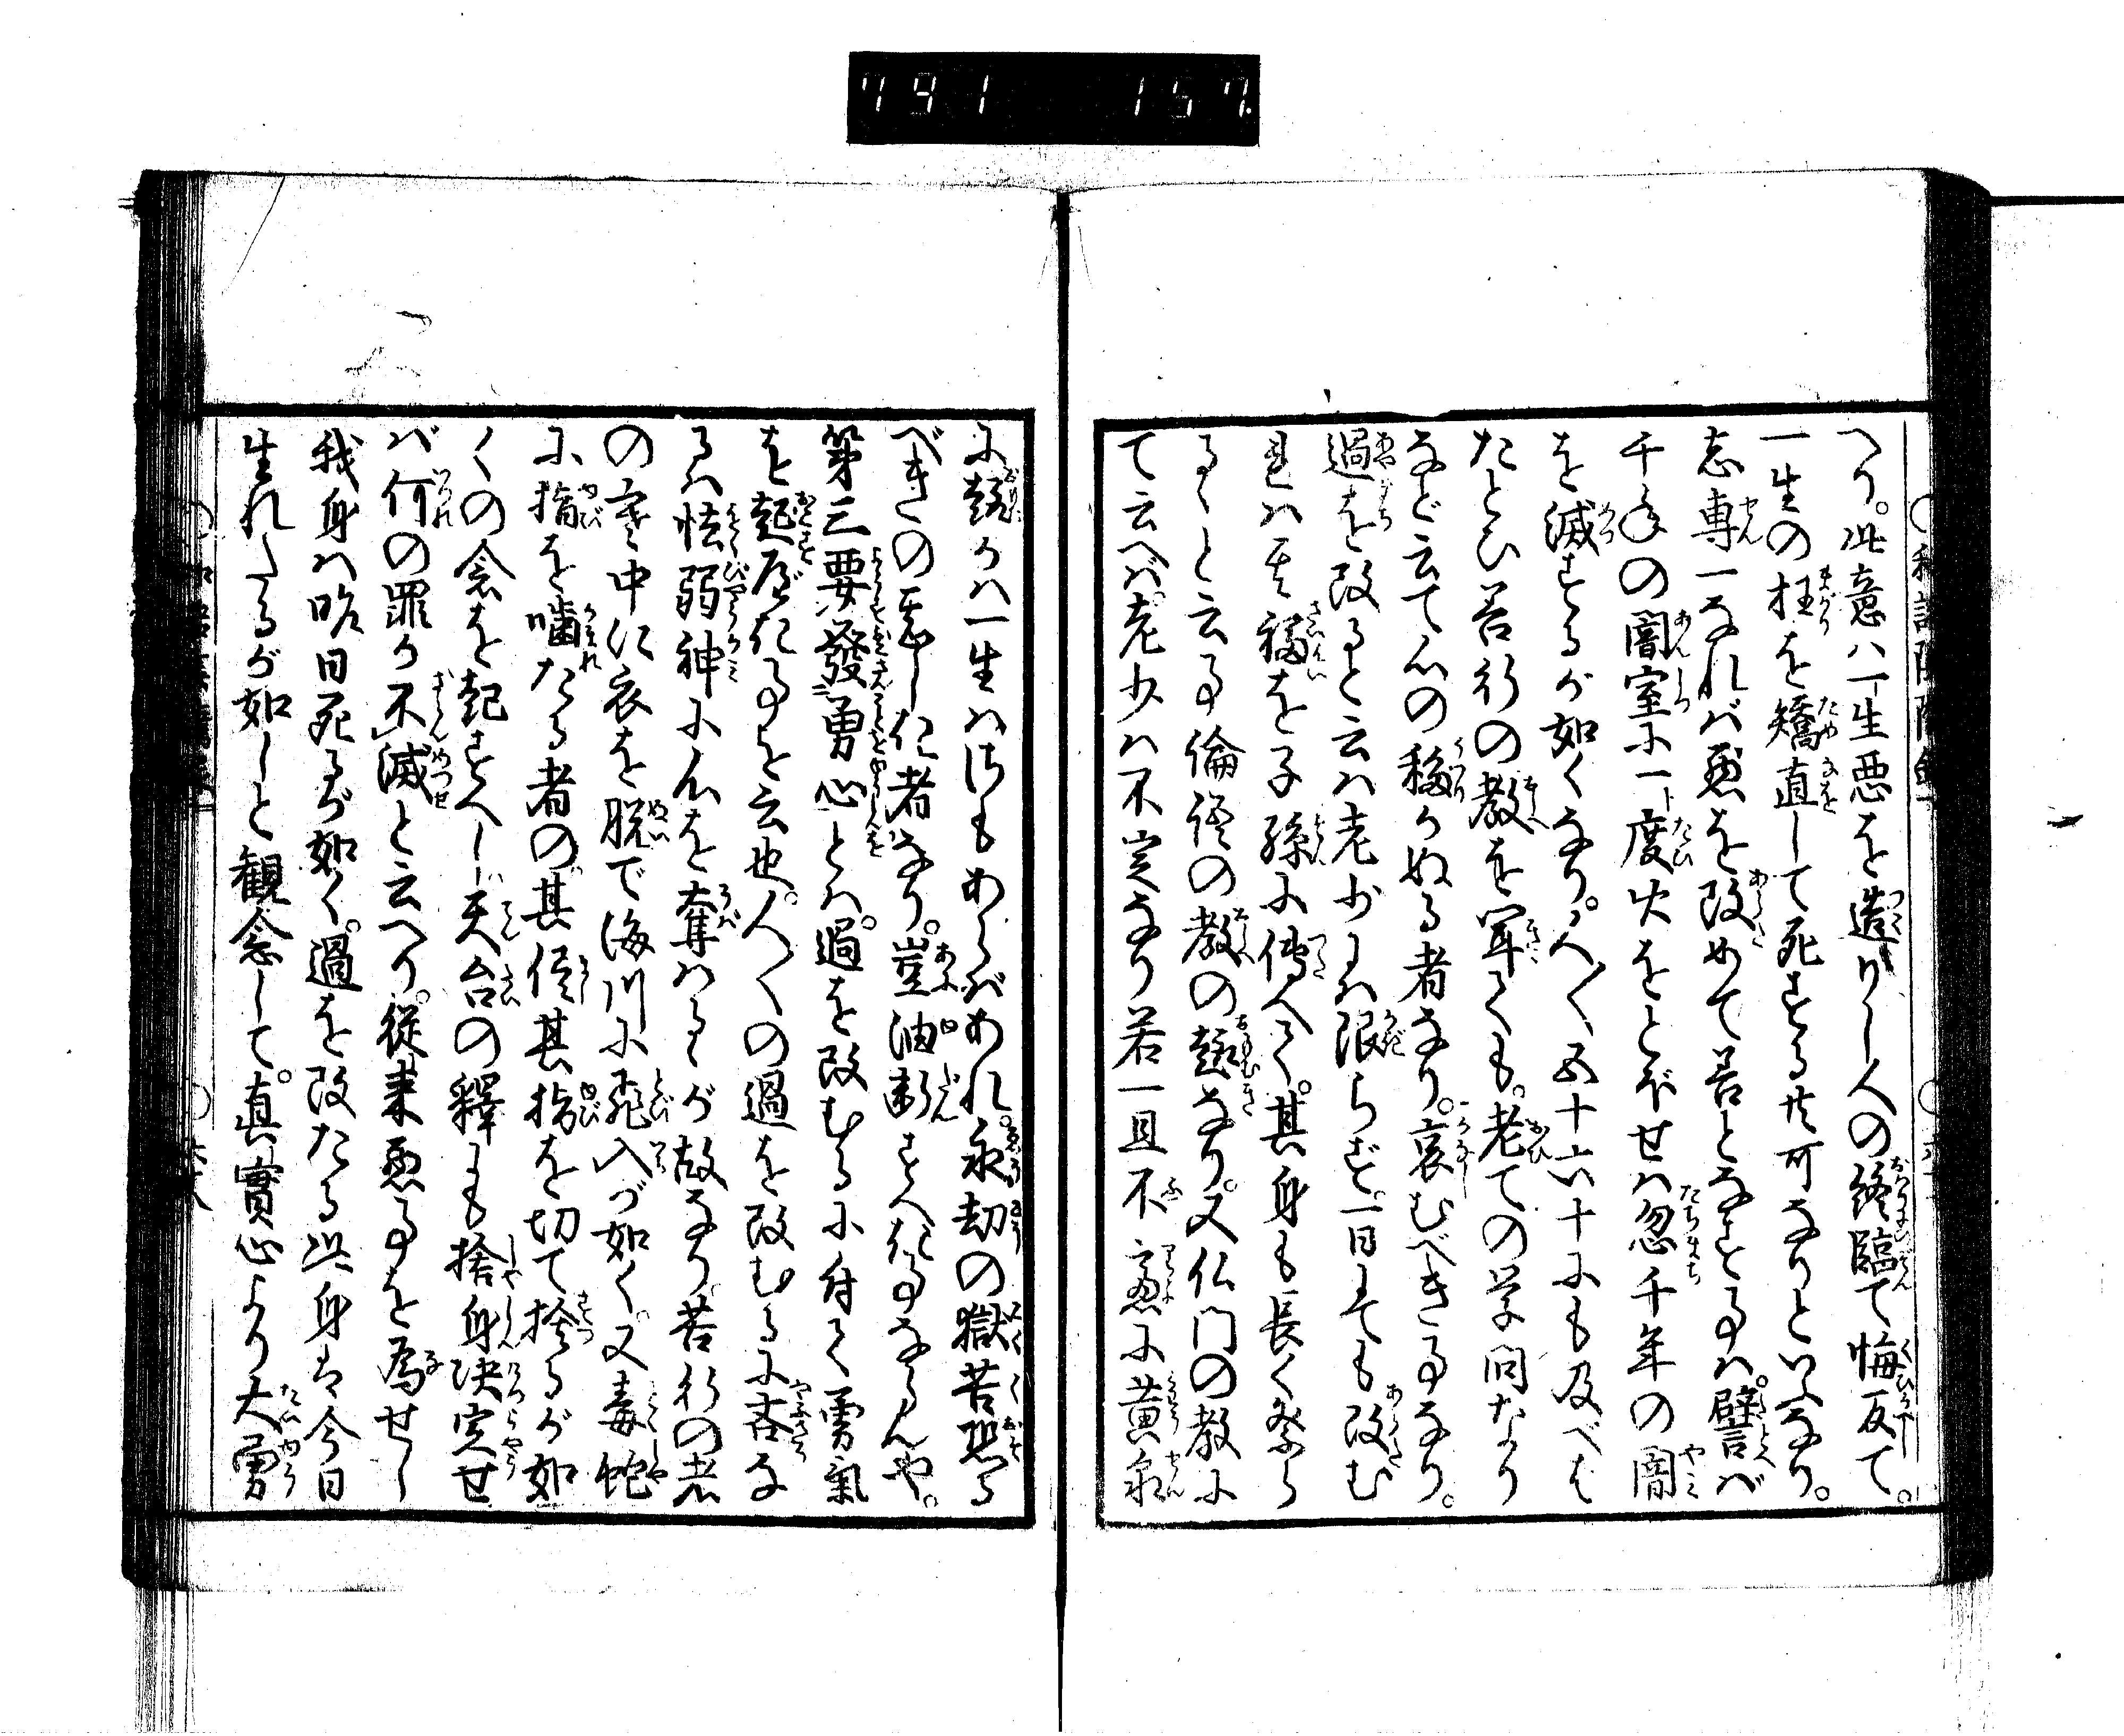 791 157.
へり。此意ハ一生悪を造りし人の終臨て悔反て。
一生の枉を矯直して死するは可なりといふなり。
志専一なれバ悪を改めて善となする事ハ。譬バ
千年の闇室に一度火をとぼせハ忽千年の闇
を滅するが如くなり。人〻五十六十にも及べば
たとひ善行の教を聞ても。老ての学問なり
など云て心の移らぬる者なり。哀むべき事なり。
過を改ると云ハ老少には限らず。一日にても改む
れハ其福を子孫に傳へて。其身も長く祭ら
るゝと云る倫理の教の趣なり。又仏門の教に
て云へバ。老少ハ不定なり若一旦不慮に黄泉
に趣かハ一生ハ汚もあらバあれ。永劫の獄苦恐る
べきの甚しき者なり。豈油断すべき事ならんや。
第三要發勇心とハ。過を改むるに付て勇氣
を起すべき事を云也。人〻の過を改むるに吝な
るハ怯弱神に心を奪はるゝが故なり。苦行の者
の寒中に衣を脱で海川に飛入が如く。又毒蛇
に指を噛たる者の。其侭其指を切て捨るが如
くの念を起すべし天台の釋にも捨身決定せ
バ何の罪か不滅と云へり。従来悪事を為せし
我身ハ昨日死るが如く。過を改たる此身は今日
生れたるが如しと観念して。真實心より大勇